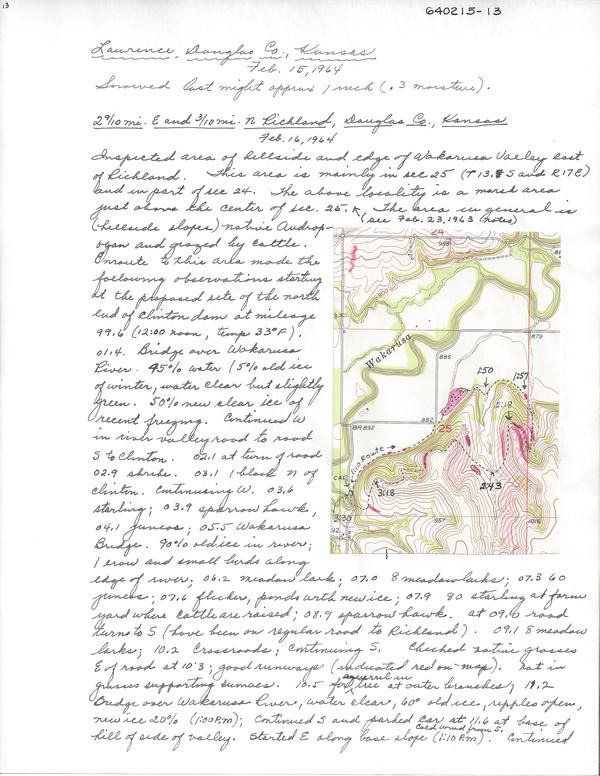 13
640215-13
Lawrence, Douglas Co., Kansas
Feb. 15, 1964
Snowed last night approx 1 inch (.3 moisture).
2 9/10 mi. E and 3/10 mi. N Richland, Douglas Co., Kansas
Feb. 16, 1964
Inspected area of hillside and edge of Wakarusa Valley east
of Richland. This area is mainly in sec 25 (T 13 S and R 17 E)
and in part of sec 24. The above locality is a marsh area
just above the center of sec. 25. The area in general is
(see Feb. 23, 1963 notes)
(hillside slopes) native Androp-
ogon and grazed by cattle.
Enroute to this area made the
following observations starting
at the proposed site of the north
end of Clinton dam at mileage
99.6 (12:00 noon, temp 33°F).
01.4. Bridge over Wakarusa
River. 45% water (5% old ice
of winter, water clear but slightly
green. 50% new clear ice of
recent freezing. Continued W
in river valley road to road
S to Clinton. 02.1 at turn of road
02.9 shrike. 03.1 1 block N of
Clinton. Continuing W. 03.6
starling; 03.9 sparrow hawk,
04.1 juncos; 05.5 Wakarusa
Bridge. 90% old ice in river;
1 crow and small birds along
edge of river; 06.2 meadow lark; 07.0 8 meadowlarks; 07.3 60
juncos; 07.6 flicker, ponds with new ice; 07.9 80 starling at farm
yard where cattle are raised; 08.9 sparrow hawk. at 09.0 road
turns to S (have been on regular road to Richland). 09.1 8 meadow
larks; 10.2 Crossroads; Continuing S. Checked native grasses
E of road at 10.3; good runways (indicated red on map). Rat in
grasses supporting sumacs. 10.5 squirrel in tree at outer branches; 11.2
Bridge over Wakarusa River, water clear, 60° old ice, ripples open,
new ice 20% (1:00 P.M); Continued S and parked car at 11.6 at base of
hill of side of valley. Cold wind from S. Started E along base slope (1:10 P.M). Continued
24
988
900
Wakarusa
885
879
1:50
1:57
2:12
882
BR 892
25
1:10 Route
CAR
1000
3:18
2:43
3:30
957
1016